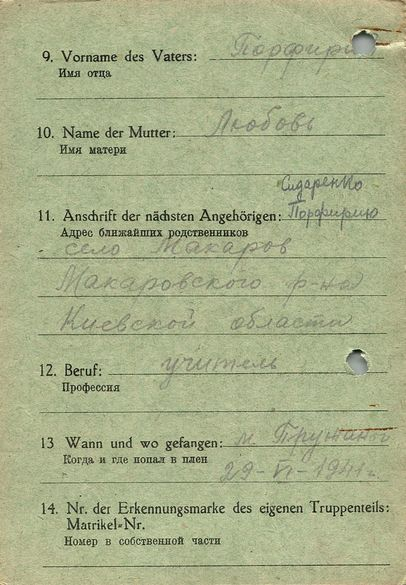 9. Vorname des Vaters: Порфирий
Имя отца
10. Name der Mutter: Любовь
Имя матери
Сидаренко
11. Anschrift der nächsten Angehörigen: Порфирию
Адрес ближайших родственников
село Макаров
Макаровского р-на
Киевской области
12. Beruf: учитель
Профессия
13 Wann und wo gefangen: м. Пружаны
Когда и где попал в плен
29-VI-1941г.
14. Nr. der Erkennungsmarke des eigenen Truppenteils:
Matrikel-Nr.
Номер в собственной части